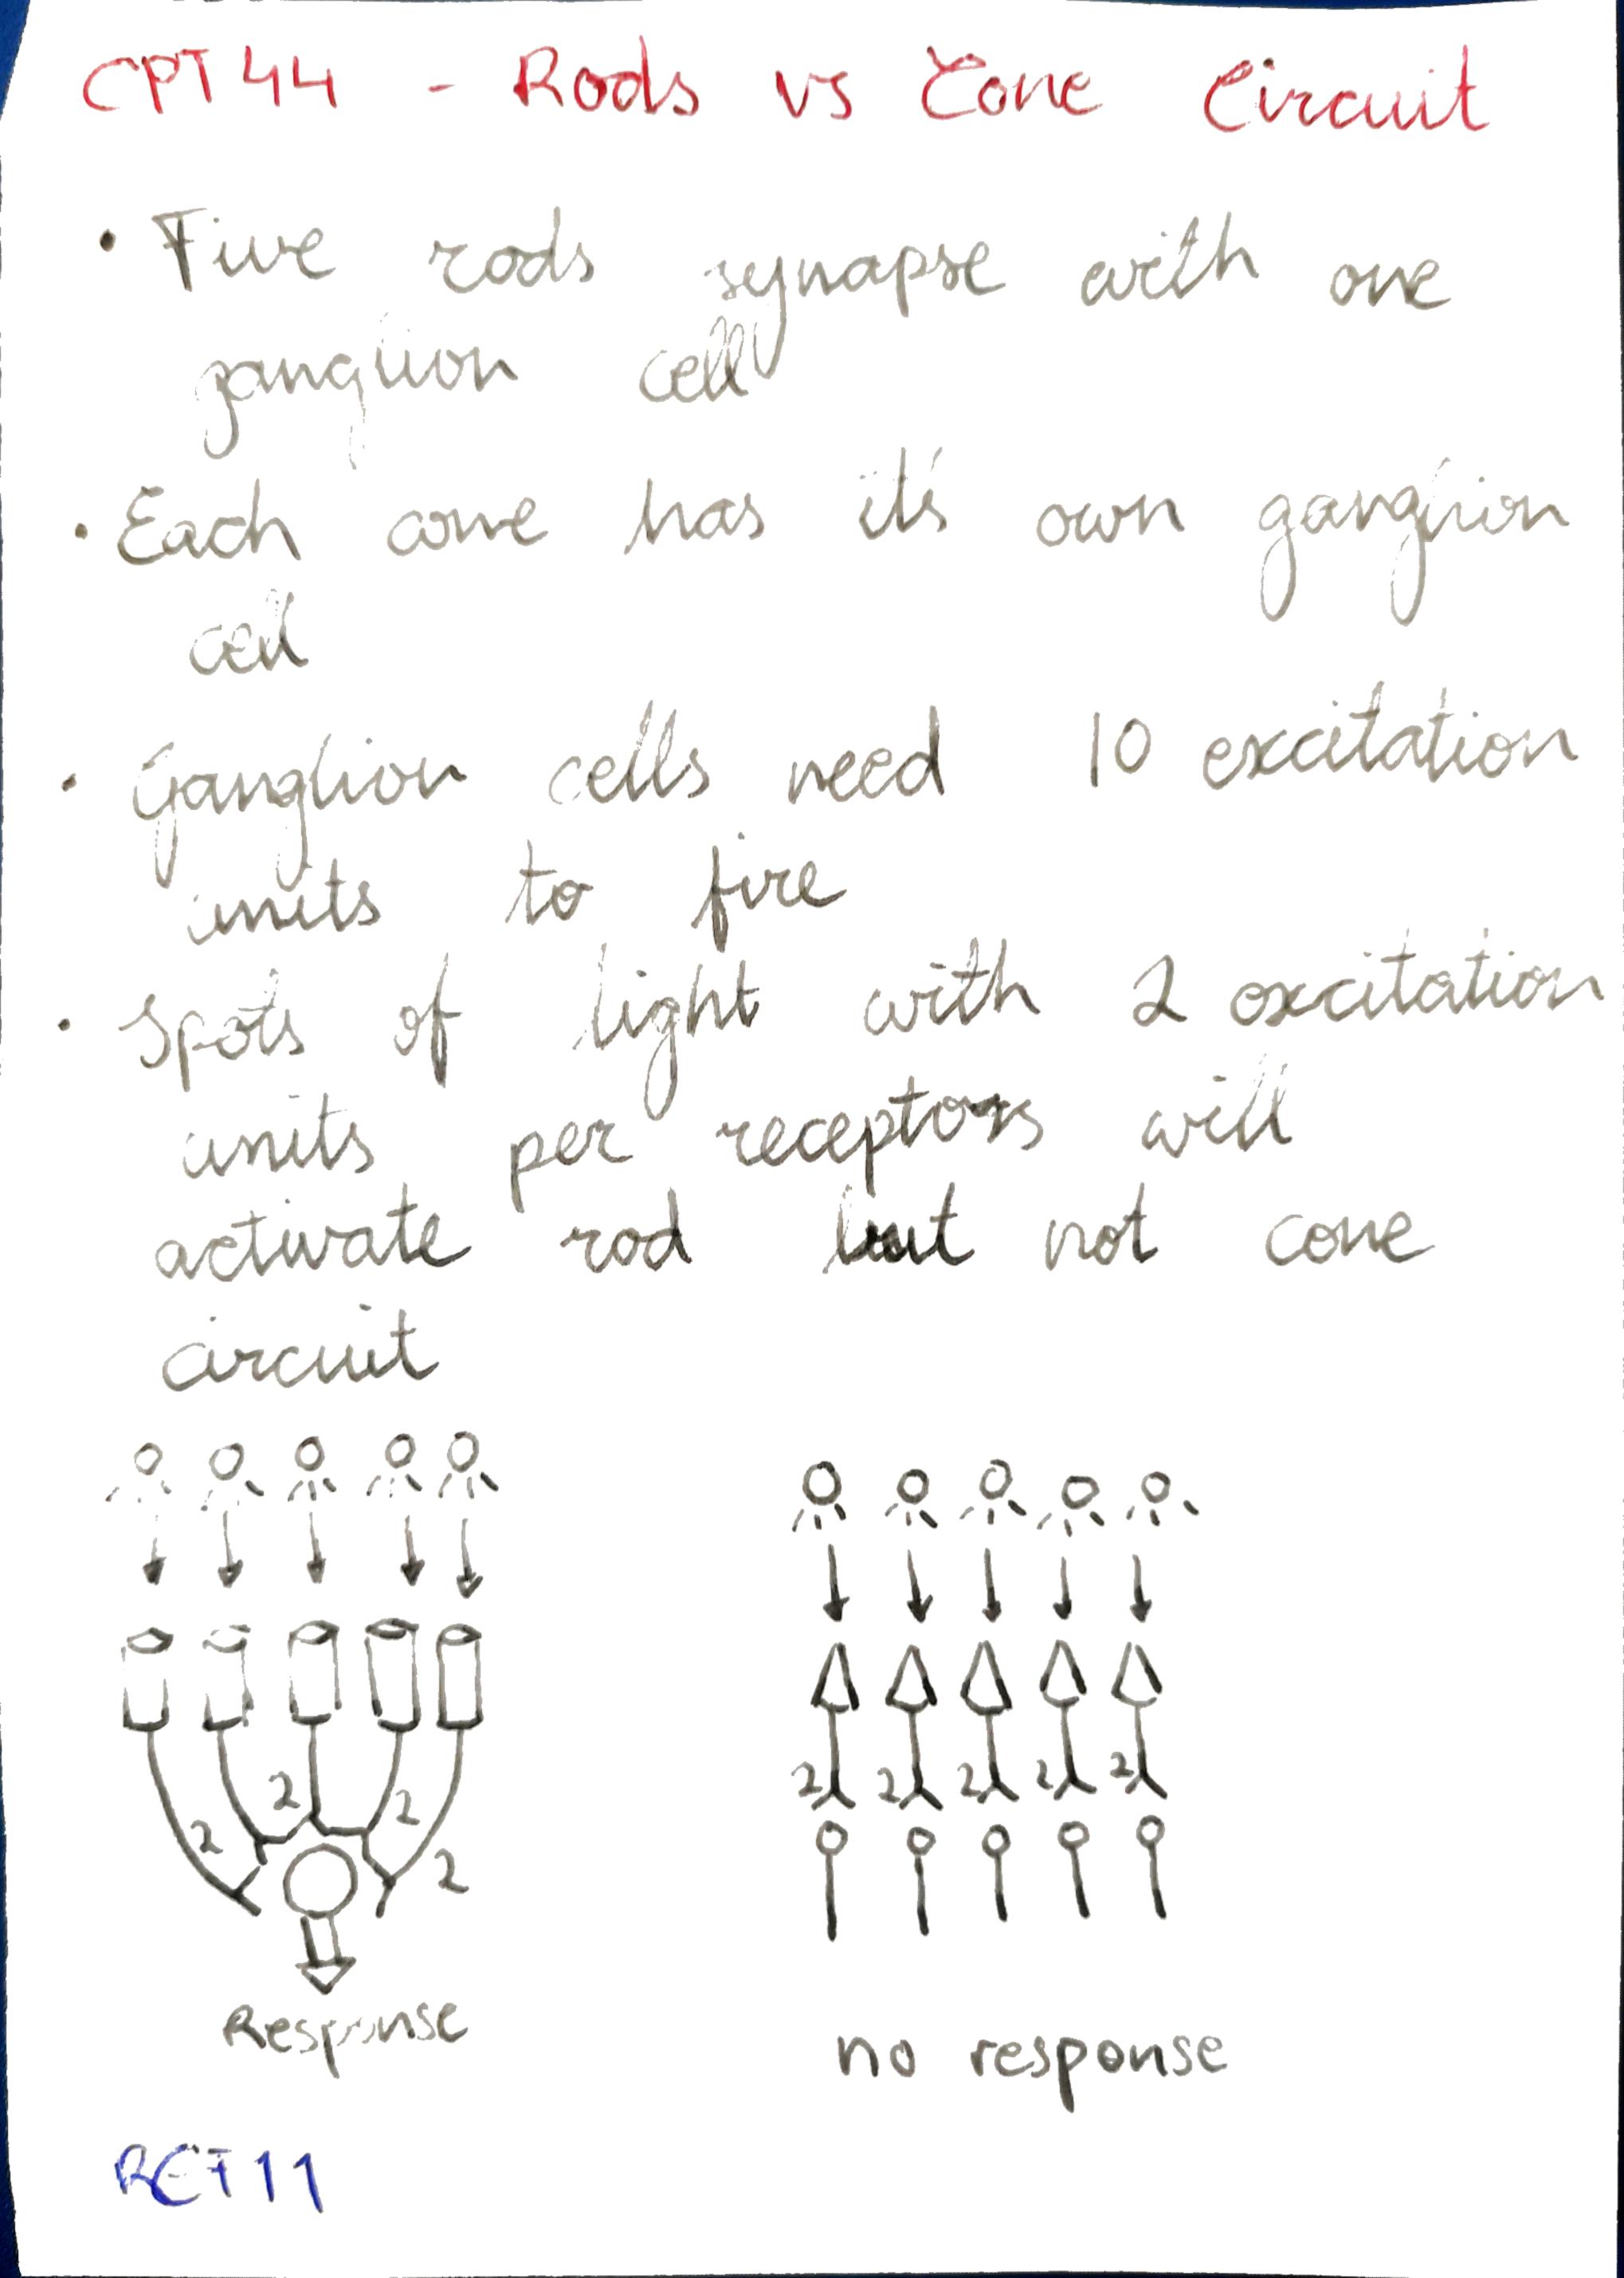 CPT44 - Rods vs Cone Circuit
• Five rods synapse with one
ganglion cell
• Each cone has it's own ganglion
cell
• Ganglion cells need 10 excitation
units to fire
• Spots of light with 2 excitation
units per receptors will
activate rod but not cone
circuit
2 2 2 2
2 2 2 2 2
Response
no response
RCT11